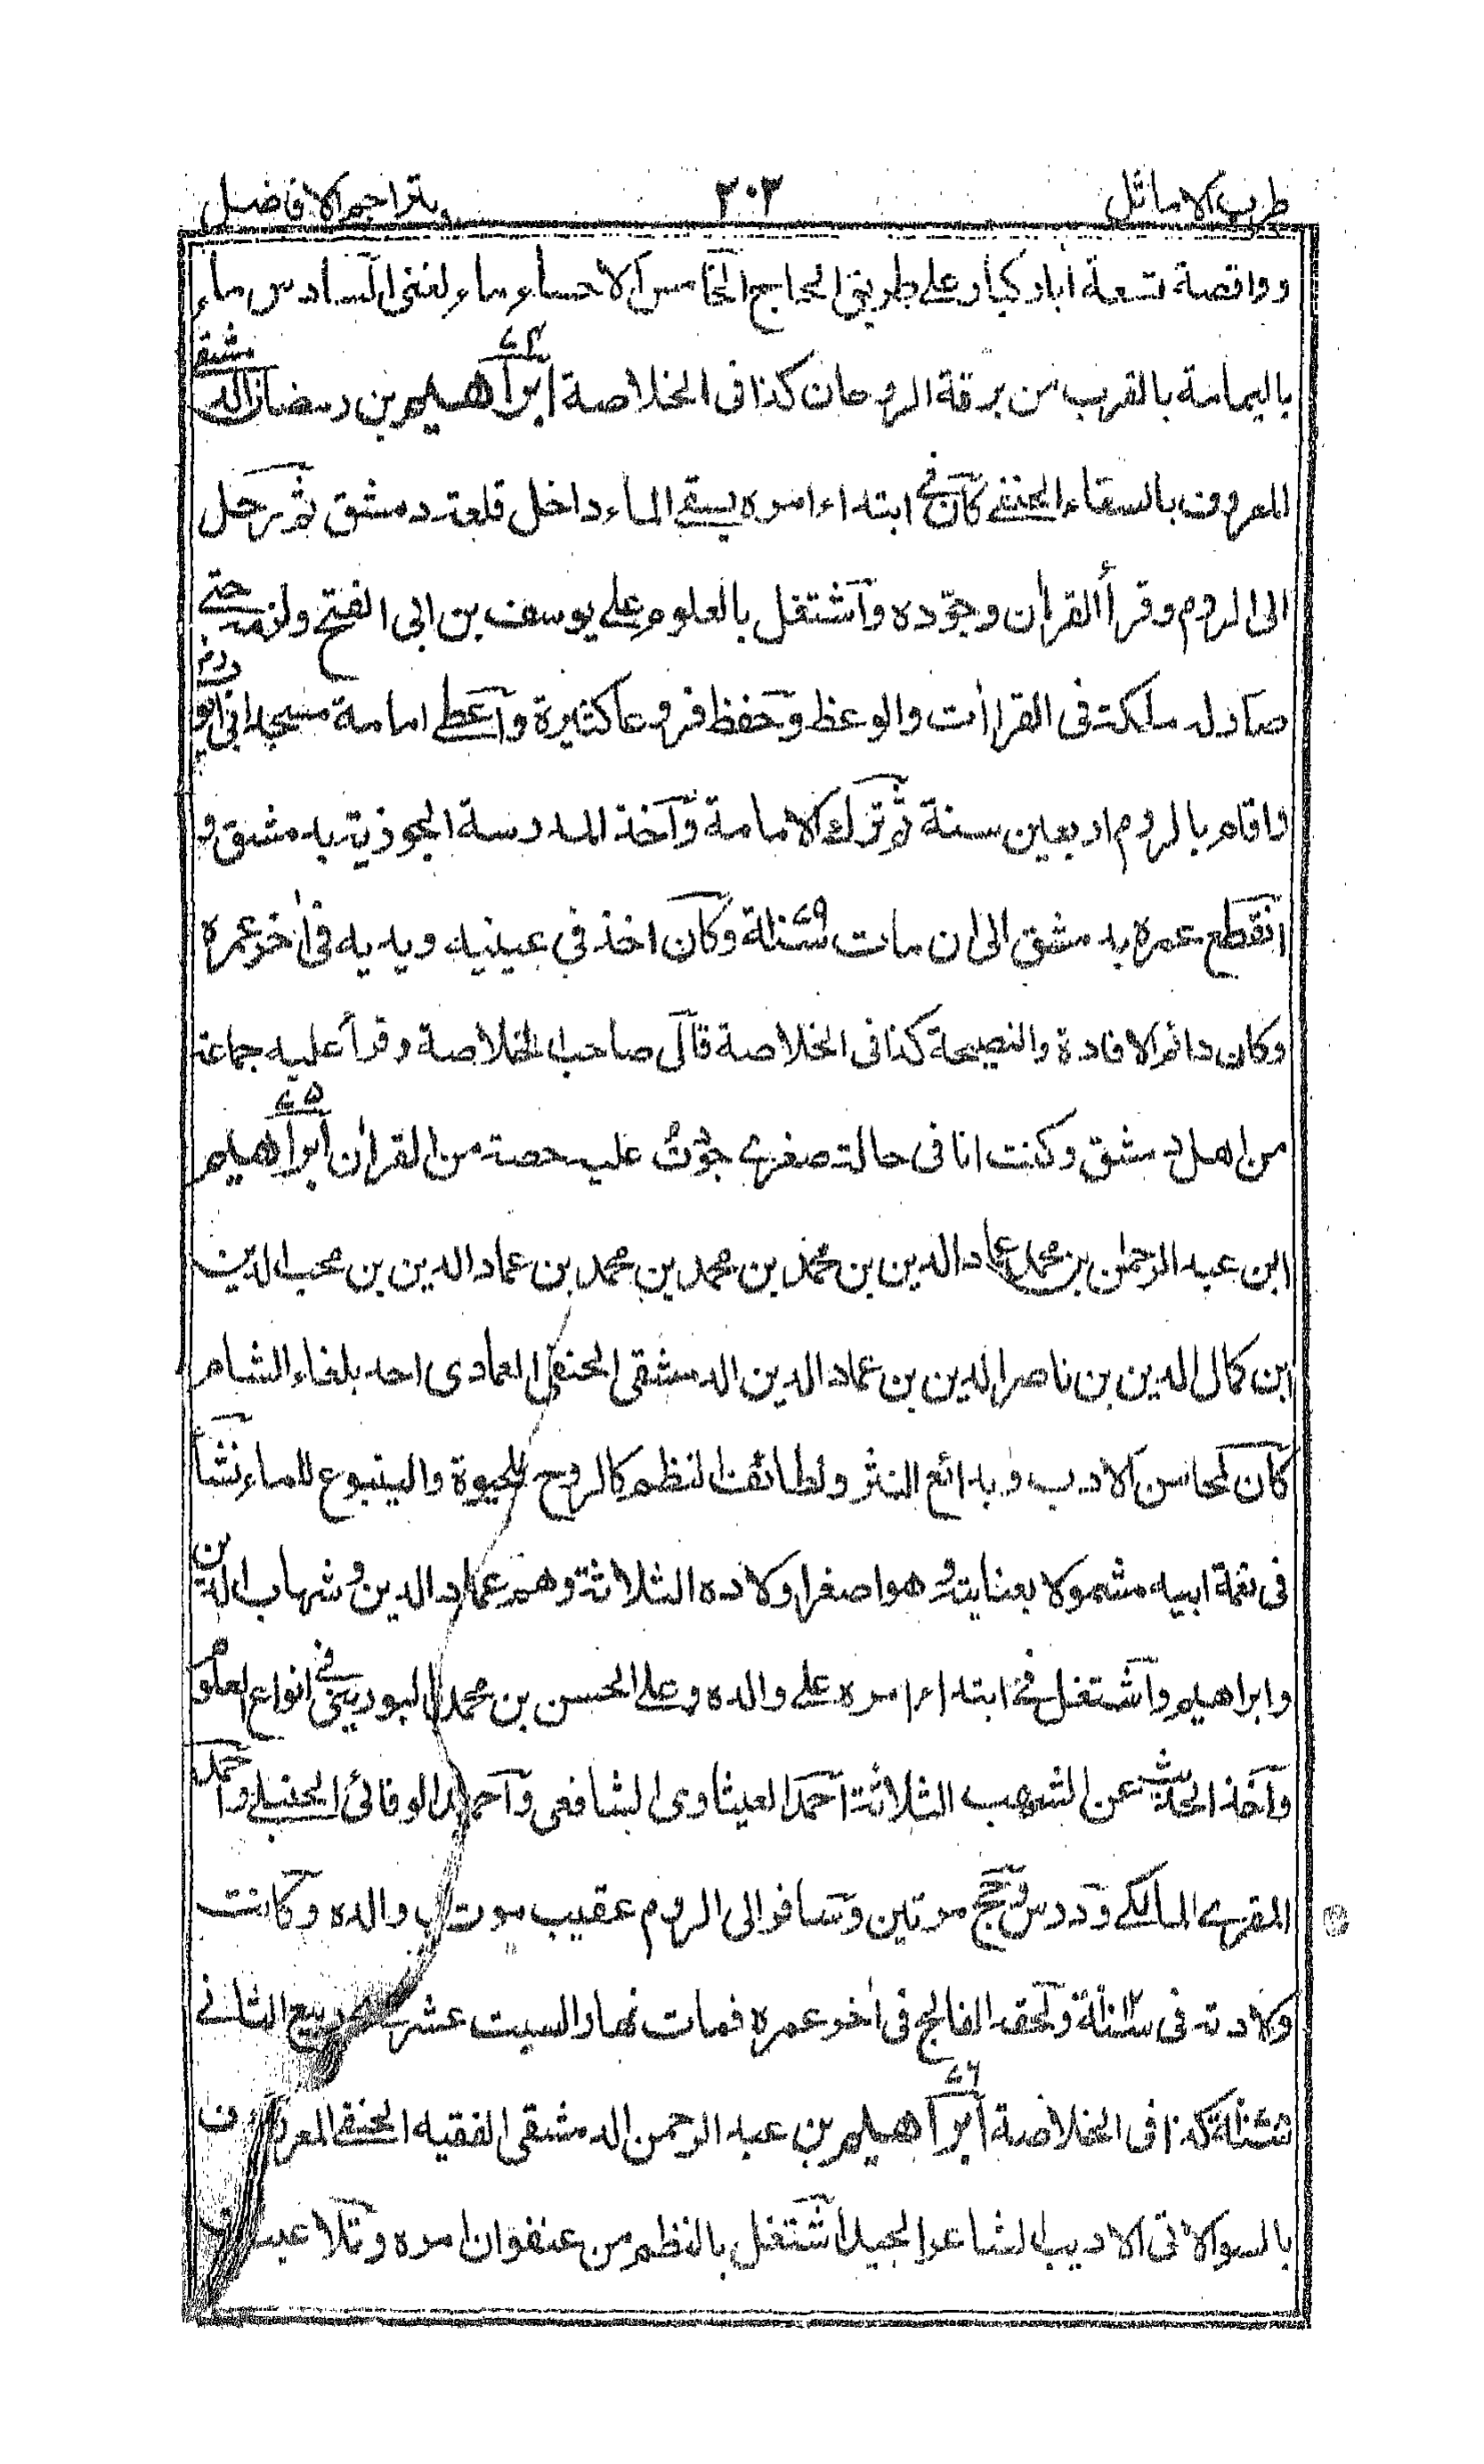 طرب الاماثل ٢٠٣ بتراجم الافاضل
وواقصة تسعة اٰبار كبار على طريق الحاج الخامس الاحساء ماء لغنى السادس ماء
باليمامة بالقرب من برقة الروحان كذا فى الخلاصة ٧٤ ابراهيم بن رمضان الدمشقے
المعروف بالسقاء الحنفے كان فے ابتداء امره يسقے الماء داخل قلعة دمشق ثم رحل
الى الروم وقرأ القراٰن وجوّده واشتغل بالعلوم علے يوسف بن ابى الفتح ولزمه حتے
صار له ملكة فى القراأت والوعظ وحفظ فروعا كثيرة واعطے امامة مسجد
واقام بالروم اربعين سنة ثم ترك الامامة واخذ المدرسة الجوزية بدمشق و
انقطع عمره بدمشق الى ان مات سنة ١٠٧٩ وكان اخذ فى عينيه ويديه فى اٰخر عمره
وكان دائم الافادة والنصيحة كذا فى الخلاصة قال صاحب الخلاصة وقرأ عليه جماعة
من اهل دمشق وكنت انا فى حالة صغرے جوّدت عليه حصة من القراٰن ٧٥ ابراهيم
ابن عبد الرحمٰن بن محمد عماد الدين بن محمد بن محمد بن محمد بن عماد الدين بن محب الدين
ابن كمال الدين بن ناصر الدين بن عماد الدين الدمشقى الحنفى العمادى احد بلغاء الشام
كان لمحاسن الادب وبدائع النثر ولطائف النظم كالروح للحيوة والينبوع للماء نشأ
فى نعمة ابيه مشمولا بعنايته وهو اصغر اولاده الثلاثة وهم عماد الدين وشهاب الدين
وابراهيم واشتغل فے ابتداء امره علے والده وعلے الحسن بن محمد البورينى فے انواع العلوم
واخذ الحديث عن الشهب الثلاثة احمد العيثاوى الشافعى واحمد الوفائى الحنبلے واحمد
المقرے المالكے ودرس وحج مرتين وسافر الى الروم عقيب موت والده وكانت
ولادته فى سنة ١٠١٢ ولحقه الفالج فى اٰخر عمره فمات نهار السبت عشرے ربيع الثانے
كذا فى الخلاصة ٧٦ ابراهيم بن عبد الرحمن الدمشقى الفقيه الحنفے المعروف
بالسوالاتى الاديب الشاعر المجيد اشتغل بالنظم من عنفوان امره وتلاعب